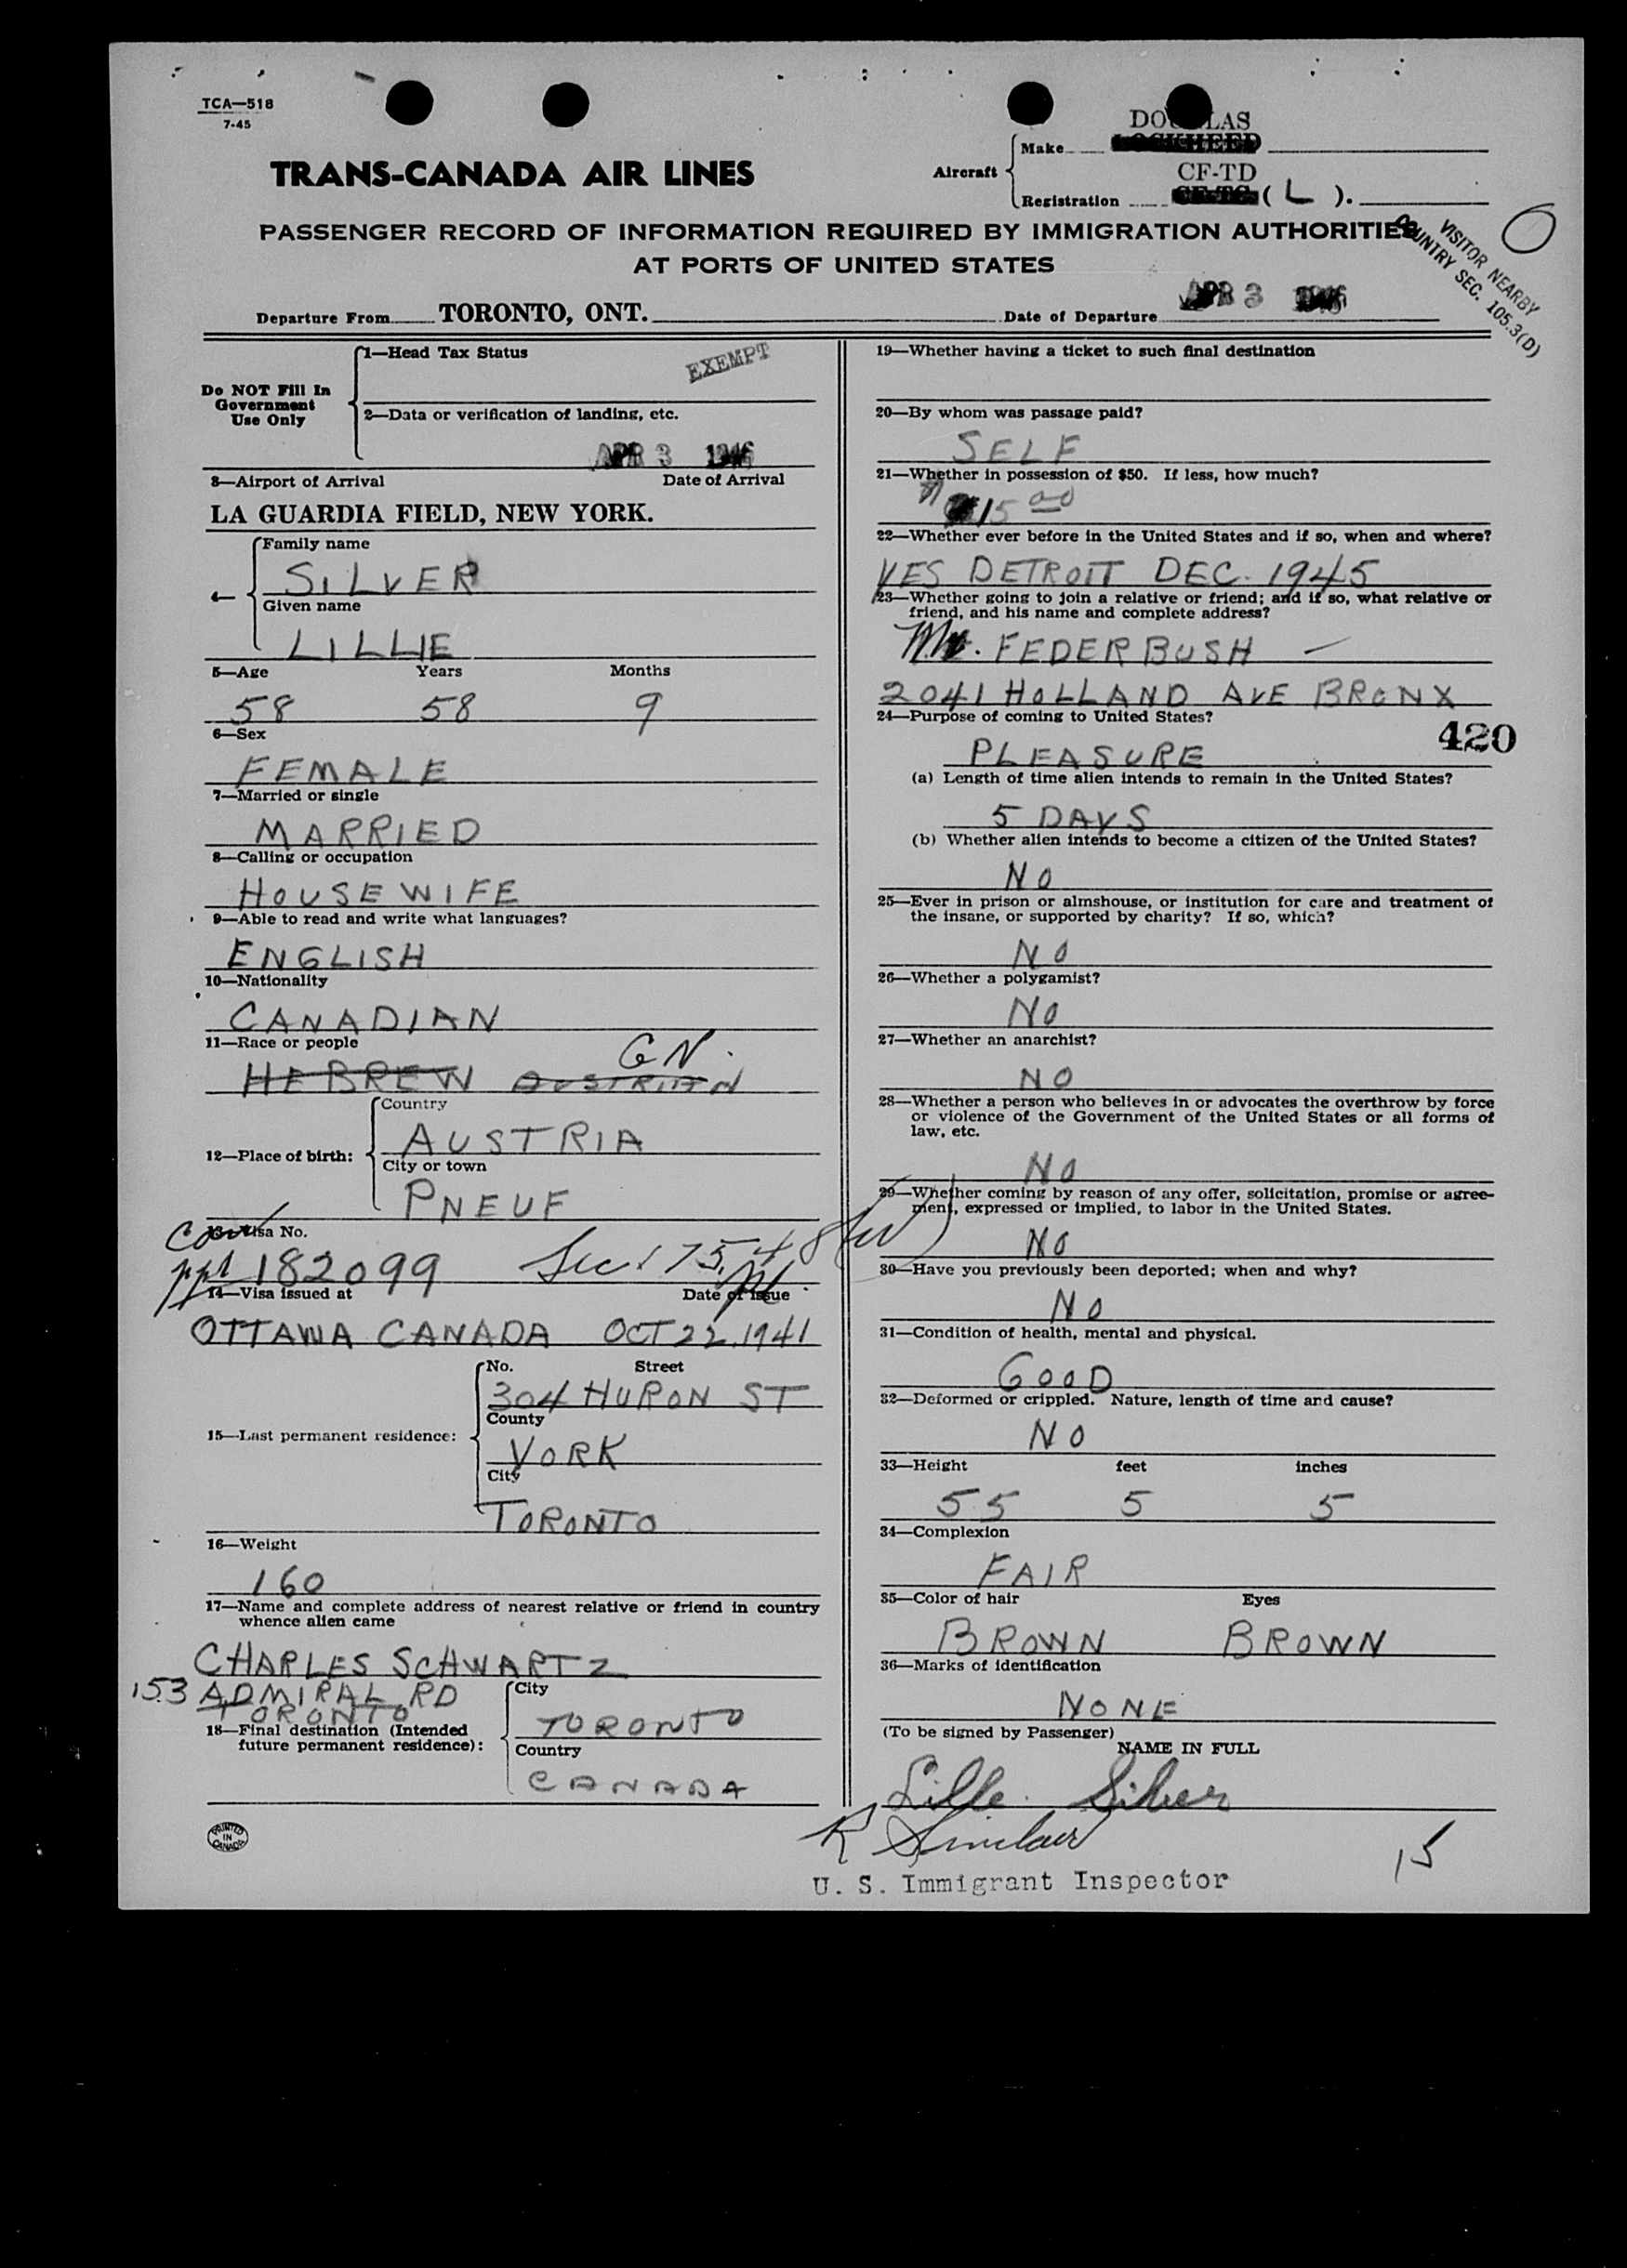 TCA—518
7-45
DOUGLAS
Make LOCKHEED
TRANS-CANADA AIR LINES
Aircraft
CF-TD
Registration CF-TC ( L ).
PASSENGER RECORD OF INFORMATION REQUIRED BY IMMIGRATION AUTHORITIES
AT PORTS OF UNITED STATES
VISITOR NEARBY
COUNTRY SEC. 105.3(D)
Departure From TORONTO, ONT.
Date of Departure APR 3 1946
Do NOT Fill In
Government
Use Only
1—Head Tax Status
EXEMPT
2—Data or verification of landing, etc.
APR 3 1946
3—Airport of Arrival Date of Arrival
LA GUARDIA FIELD, NEW YORK.
4—
Family name
SILVER
Given name
LILLIE
5—Age Years Months
58 58 9
6—Sex
FEMALE
7—Married or single
MARRIED
8—Calling or occupation
HOUSEWIFE
9—Able to read and write what languages?
ENGLISH
10—Nationality
CANADIAN
11—Race or people
GN.
HEBREW AUSTRIAN
12—Place of birth:
Country
AUSTRIA
City or town
PNEUF
Can
13—Visa No.
ppt 182099 Sec 175.48
14—Visa issued at Date of issue
OTTAWA CANADA OCT 22, 1941
15—Last permanent residence:
No. Street
304 HURON ST
County
YORK
City
TORONTO
16—Weight
160
17—Name and complete address of nearest relative or friend in country
whence alien came
CHARLES SCHWARTZ
153 ADMIRAL RD
TORONTO
18—Final destination (Intended
future permanent residence):
City
TORONTO
Country
CANADA
PRINTED
IN
CANADA
19—Whether having a ticket to such final destination
20—By whom was passage paid?
SELF
21—Whether in possession of $50. If less, how much?
15 00
22—Whether ever before in the United States and if so, when and where?
YES DETROIT DEC. 1945
23—Whether going to join a relative or friend; and if so, what relative or
friend, and his name and complete address?
Mr. FEDERBUSH —
2041 HOLLAND AVE BRONX
24—Purpose of coming to United States?
420
PLEASURE
(a) Length of time alien intends to remain in the United States?
5 DAYS
(b) Whether alien intends to become a citizen of the United States?
NO
25—Ever in prison or almshouse, or institution for care and treatment of
the insane, or supported by charity? If so, which?
NO
26—Whether a polygamist?
NO
27—Whether an anarchist?
NO
28—Whether a person who believes in or advocates the overthrow by force
or violence of the Government of the United States or all forms of
law, etc.
NO
29—Whether coming by reason of any offer, solicitation, promise or agree-
ment, expressed or implied, to labor in the United States.
NO
30—Have you previously been deported; when and why?
NO
31—Condition of health, mental and physical.
GOOD
32—Deformed or crippled. Nature, length of time and cause?
NO
33—Height feet inches
55 5 5
34—Complexion
FAIR
35—Color of hair Eyes
BROWN BROWN
36—Marks of identification
NONE
(To be signed by Passenger)
NAME IN FULL
Lillie Silver
R Sinclair
15
U. S. Immigrant Inspector